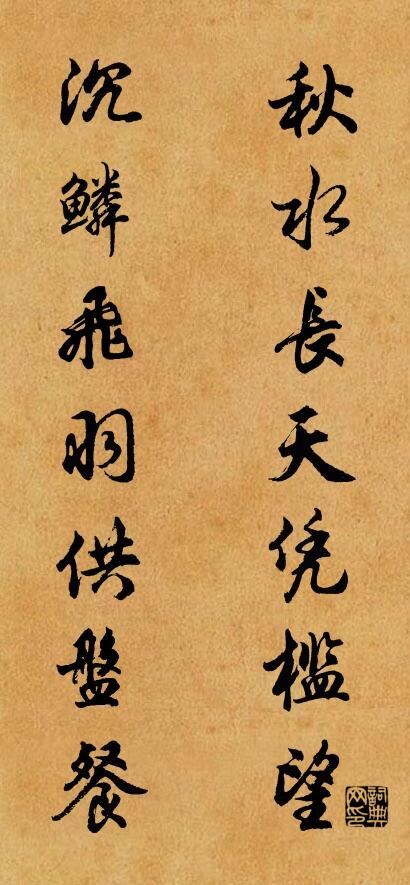 秋水長天凭檻望
沉鱗飛羽供盤餐
詞典网印